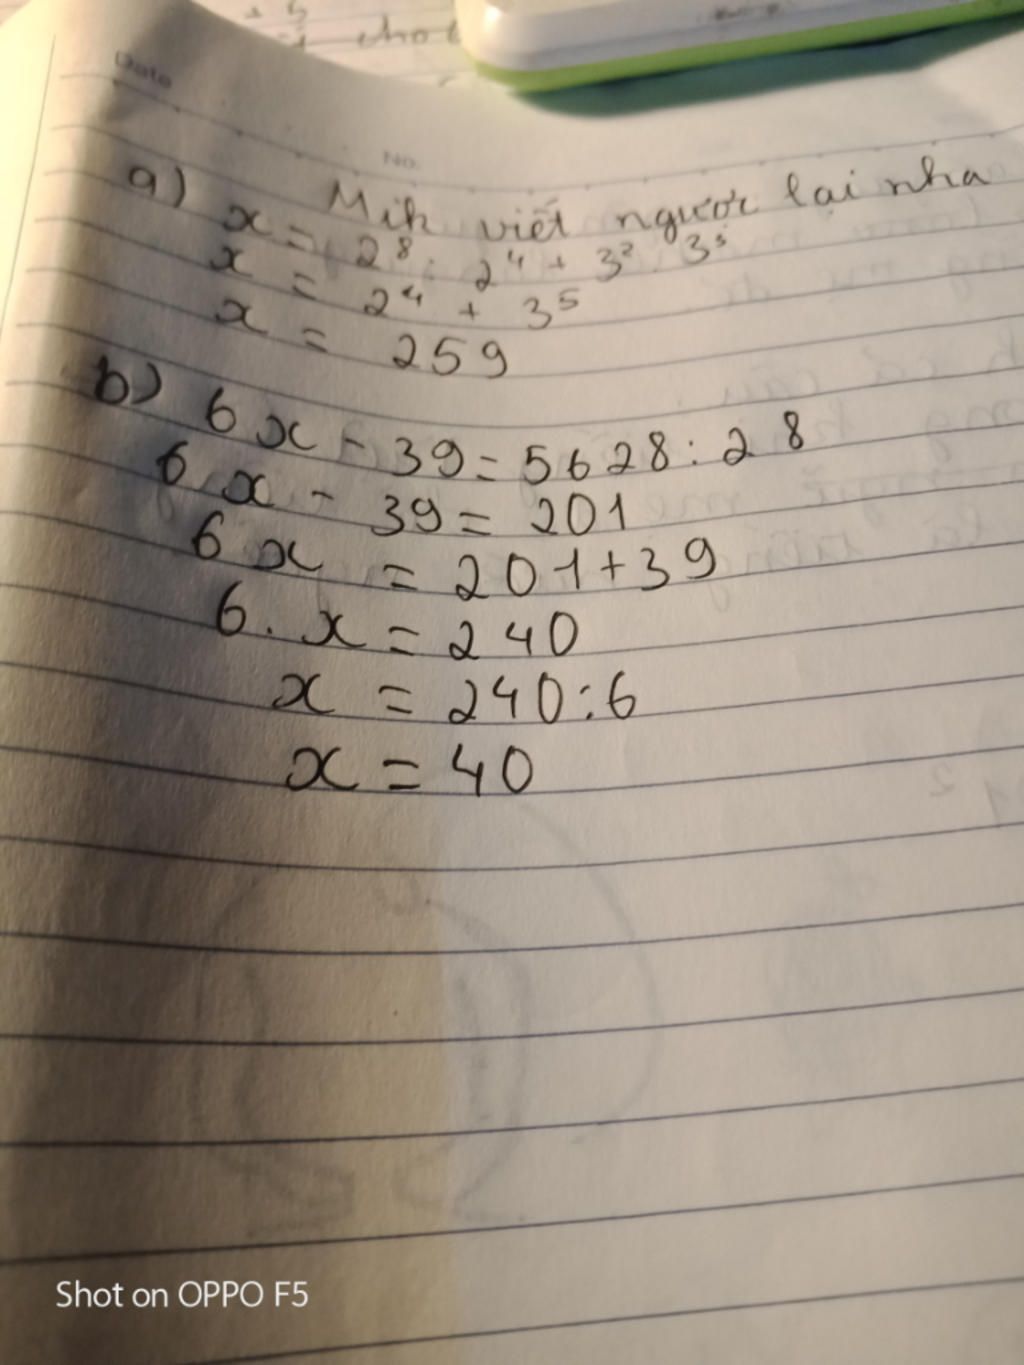 Date
No.
a) Mik viết ngược lại nha
x = 2⁸ : 2⁴ + 3² . 3³
x = 2⁴ + 3⁵
x = 259
b) 6x - 39 = 5628 : 28
6.x - 39 = 201
6x = 201 + 39
6.x = 240
x = 240 : 6
x = 40
Shot on OPPO F5